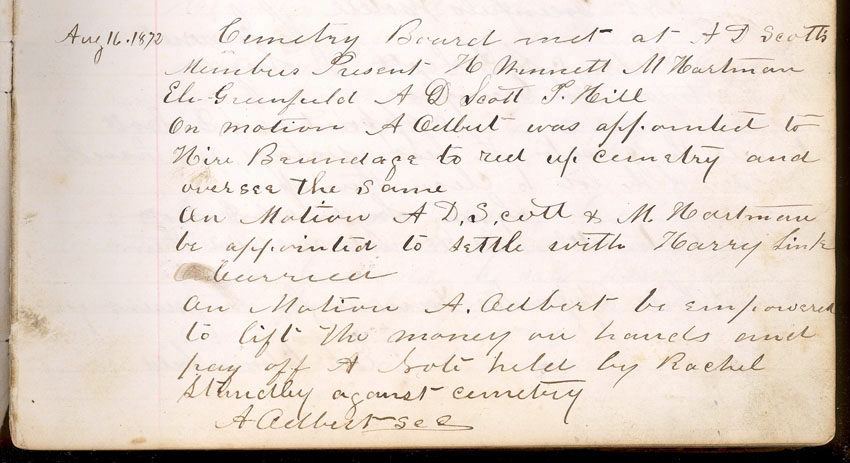 Aug 16. 1872 Cemetry Board met at A D Scotts
Members Present H Winnett M Hartman
Eli Greenfield A D Scott T. Hill
On motion A Odbert was appointed to
Hire Baundage to red up cemetry and
oversee the same
On Motion A D. Scott & M. Hartman
be appointed to settle with Harry Link
Carried
On Motion A. Odbert be empowered
to lift the money on hands and
pay off A Note held by Rachel
Standley against cemetry
A Odbert Sec